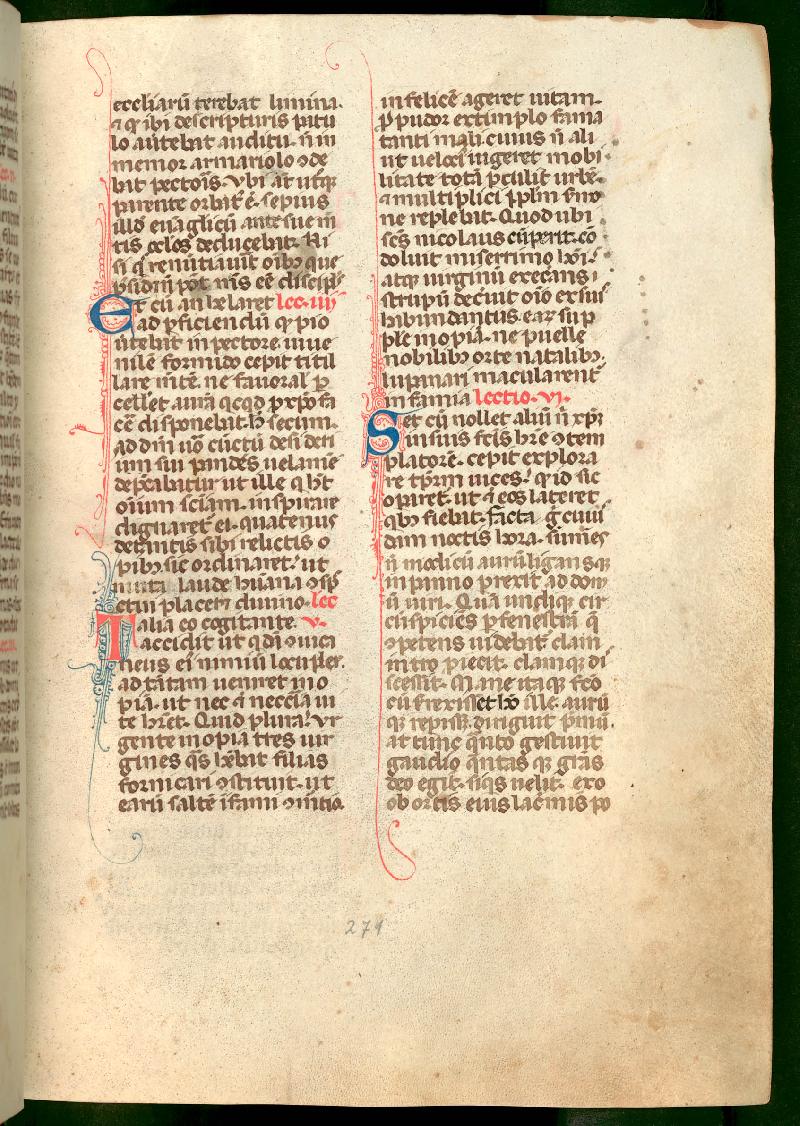 eccliarū terebat lumina.
⁊ q̄ ibi de scripturis patu
lo aūtebat auditu. n̄ in
memor armariolo ↄde
bat pectoꝛis. Vbi āt usq̄
parente orbat̄ ē. sepius
illd̄ euāglicū ante sue m̄
tis c̄los deducebat. Ni
si q̄ renūtiauit̄ oībꝯ que
meus eē discipl̓
Et cū anhelaret lec. iiij
ad ꝑficiendū qꝫ pio
in pectore. iuue
nilē formido cepit titil
lare mētē. ne fauoral̓ ꝑ
celleret aurā qcqd ꝓ xp̄o fa
cē disponebat. h̄ secum.
ad dn̄i uō cūctū desideri
um sui pandēs uelamē
dep̄cabatur ut ille q̄ hꝫt
oīum sciām. inspirare
dignaret̄ ei. quatenus
sibi relictis o
pibꝫ sic ordinaret. ut
laude hūana ↄsp̄
ctui placeret diuino. lec
Talia eo cogitante. v.
accidit ut q̄dā ↄuica
neus ei nimiū locuples.
ad tātam ueniret ino
piā. ut nec ⁊ necc̄ia ui
te hr̄et. Quid plura? Vr
gente inopia tres uir
gines q̄s hēbat filias
fornicari ↄstituit. ut
earū saltē īfami ↄmitio
infelicē ageret uitam.
Ꝓ pudor extimplo fama
tanti mali cuius n̄ ali
ut ueloci uigeret mobi
litate totā ꝑculit urbē.
⁊ multiplici pp̄lm s̄mo
ne replebat. Quod ubi
sc̄s nicolaus cūperit. cō
doluit miserrimo hōi.
atqꝫ uirginū execrans
strupū decuit oīo ex suis
habundantꝯ. ear̄ sup
plē inopiā. ne puelle
nobilibꝫ orte natalibꝫ.
lupanari macularent̄
infamia lectio. vi.
Set cū nollet aliū n̄ xp̄m
in suis fc̄is hr̄e ↄtem
platorē. cepit explora
re tp̄rm uices. q̄ id sic
opāret̄. ut ⁊ eos lateret
qbꝫ fiebat. Facta g̊ cuiꝯ
dam noctis hora. sumēs
n̄ modicū aurū ligansqꝫ
in panno ꝑrexit ad dom
ū uiri. Quā undiqꝫ cir
cūspiciēs ꝑ fenestrā q̄
ↄpetens uidebat̄ clam
intro ꝓiecit. clamqꝫ di
scessit. Mane itaqꝫ fc̄o
cū s̄rexisset hō ille. aurū
qꝫ repisset. diriguit p̄mū.
at tunc q̄nto gestiuit
gaudio q̄ntas qꝫ gr̄as
deo egit. siqs uelit. exo
ob ortis eius lac̄mis po
274